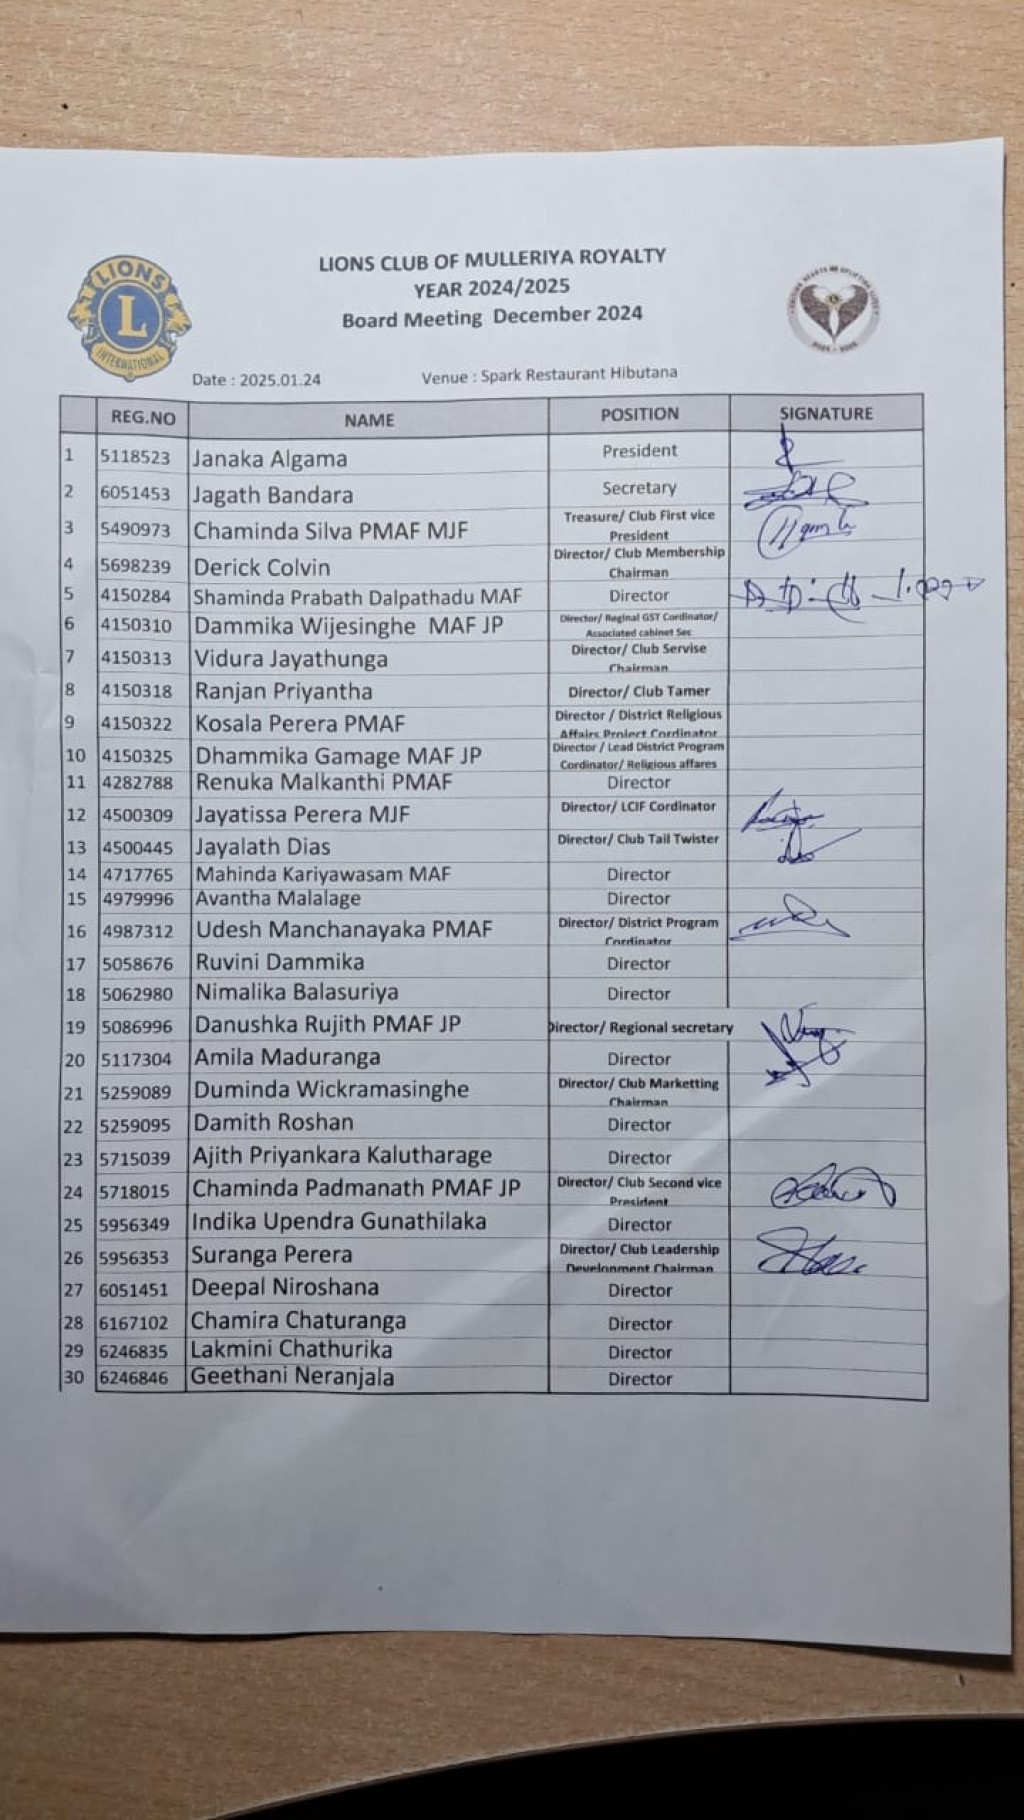 LIONS
L
INTERNATIONAL
LIONS CLUB OF MULLERIYA ROYALTY
YEAR 2024/2025
Board Meeting December 2024
2024 - 2025
Date : 2025.01.24 Venue : Spark Restaurant Hibutana
REG.NO NAME POSITION SIGNATURE
1 5118523 Janaka Algama President
2 6051453 Jagath Bandara Secretary
3 5490973 Chaminda Silva PMAF MJF Treasure/ Club First vice
President
4 5698239 Derick Colvin Director/ Club Membership
Chairman
5 4150284 Shaminda Prabath Dalpathadu MAF Director
6 4150310 Dammika Wijesinghe MAF JP Director/ Reginal GST Cordinator/
Associated cabinet Sec
7 4150313 Vidura Jayathunga Director/ Club Servise
Chairman
8 4150318 Ranjan Priyantha Director/ Club Tamer
9 4150322 Kosala Perera PMAF Director / District Religious
Affairs Project Cordinator
10 4150325 Dhammika Gamage MAF JP Director / Lead District Program
Cordinator/ Religious affares
11 4282788 Renuka Malkanthi PMAF Director
12 4500309 Jayatissa Perera MJF Director/ LCIF Cordinator
13 4500445 Jayalath Dias Director/ Club Tail Twister
14 4717765 Mahinda Kariyawasam MAF Director
15 4979996 Avantha Malalage Director
16 4987312 Udesh Manchanayaka PMAF Director/ District Program
Cordinator
17 5058676 Ruvini Dammika Director
18 5062980 Nimalika Balasuriya Director
19 5086996 Danushka Rujith PMAF JP Director/ Regional secretary
20 5117304 Amila Maduranga Director
21 5259089 Duminda Wickramasinghe Director/ Club Marketting
Chairman
22 5259095 Damith Roshan Director
23 5715039 Ajith Priyankara Kalutharage Director
24 5718015 Chaminda Padmanath PMAF JP Director/ Club Second vice
President
25 5956349 Indika Upendra Gunathilaka Director
26 5956353 Suranga Perera Director/ Club Leadership
Development Chairman
27 6051451 Deepal Niroshana Director
28 6167102 Chamira Chaturanga Director
29 6246835 Lakmini Chathurika Director
30 6246846 Geethani Neranjala Director